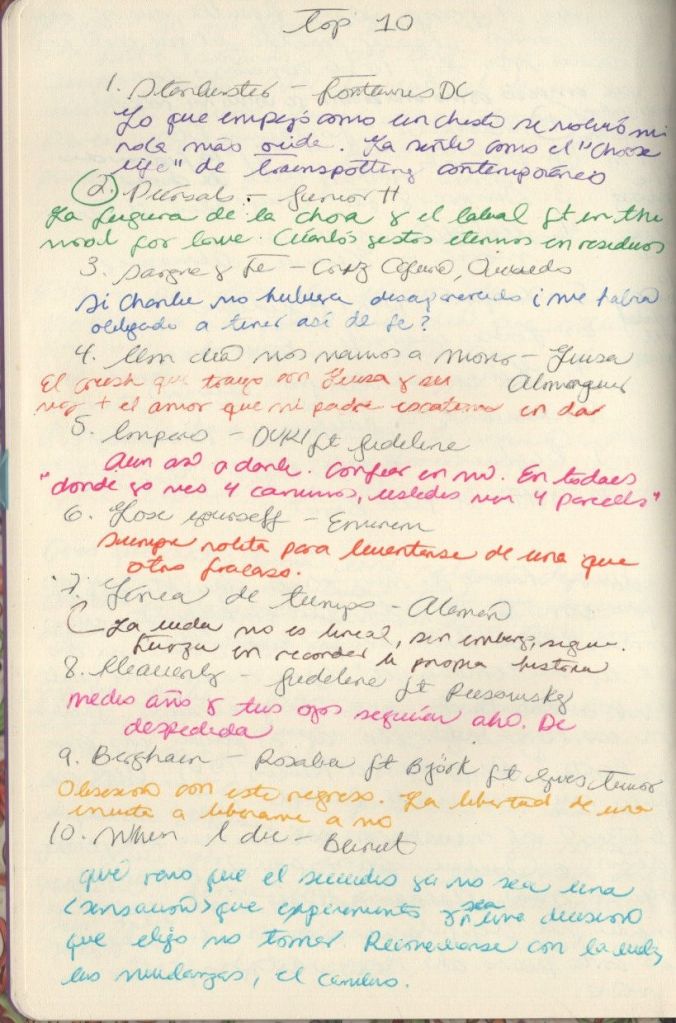 top 10
1. Starburster - Fontaines DC
Lo que empezó como un chiste se volvió mi
rola más . La siento como el "choose
life" de trainspotting contemporáneo
2. - Junior H
La de la y el labial ft in the
mood for love. Cuántos gestos eternos en residuos
3. Sangre y Fe - Cruz Cafuné, Quevedo
Si Charlie no hubiera desaparecido ¿me habría
obligado a tener así de fe?
4. Un día nos vamos a morir - Luisa
Almaguer
El crush que traigo con Luisa y su
voz + el amor que mi padre en dar
5. - DUKI ft Judeline
Aun así a darle. Confiar en mí. En todxs
"donde yo veo 4 caminos, ustedes ven 4 "
6. Lose yourself - Eminem
siempre rolita para levantarse de una que
otro fracaso.
7. Línea de tiempo - Alemán
La vida no es lineal, sin embargo, sigue.
Fuerza en recorder la propia historia
8. Heavenly - Judeline ft Rusowsky
medio año y tus ojos seguían ahí. De
despedida
9. Berghain - Rosalía ft Björk ft Yves Tumor
Obsesión con este regreso. La libertad de una
invita a liberarme a mí
10. When I die - Beirut
qué raro que el suicidio ya no sea una
<sensación> que experimento y sea una decisión
que elijo no tomar. Reconciliarse con la vida,
las mudanzas, el cambio.